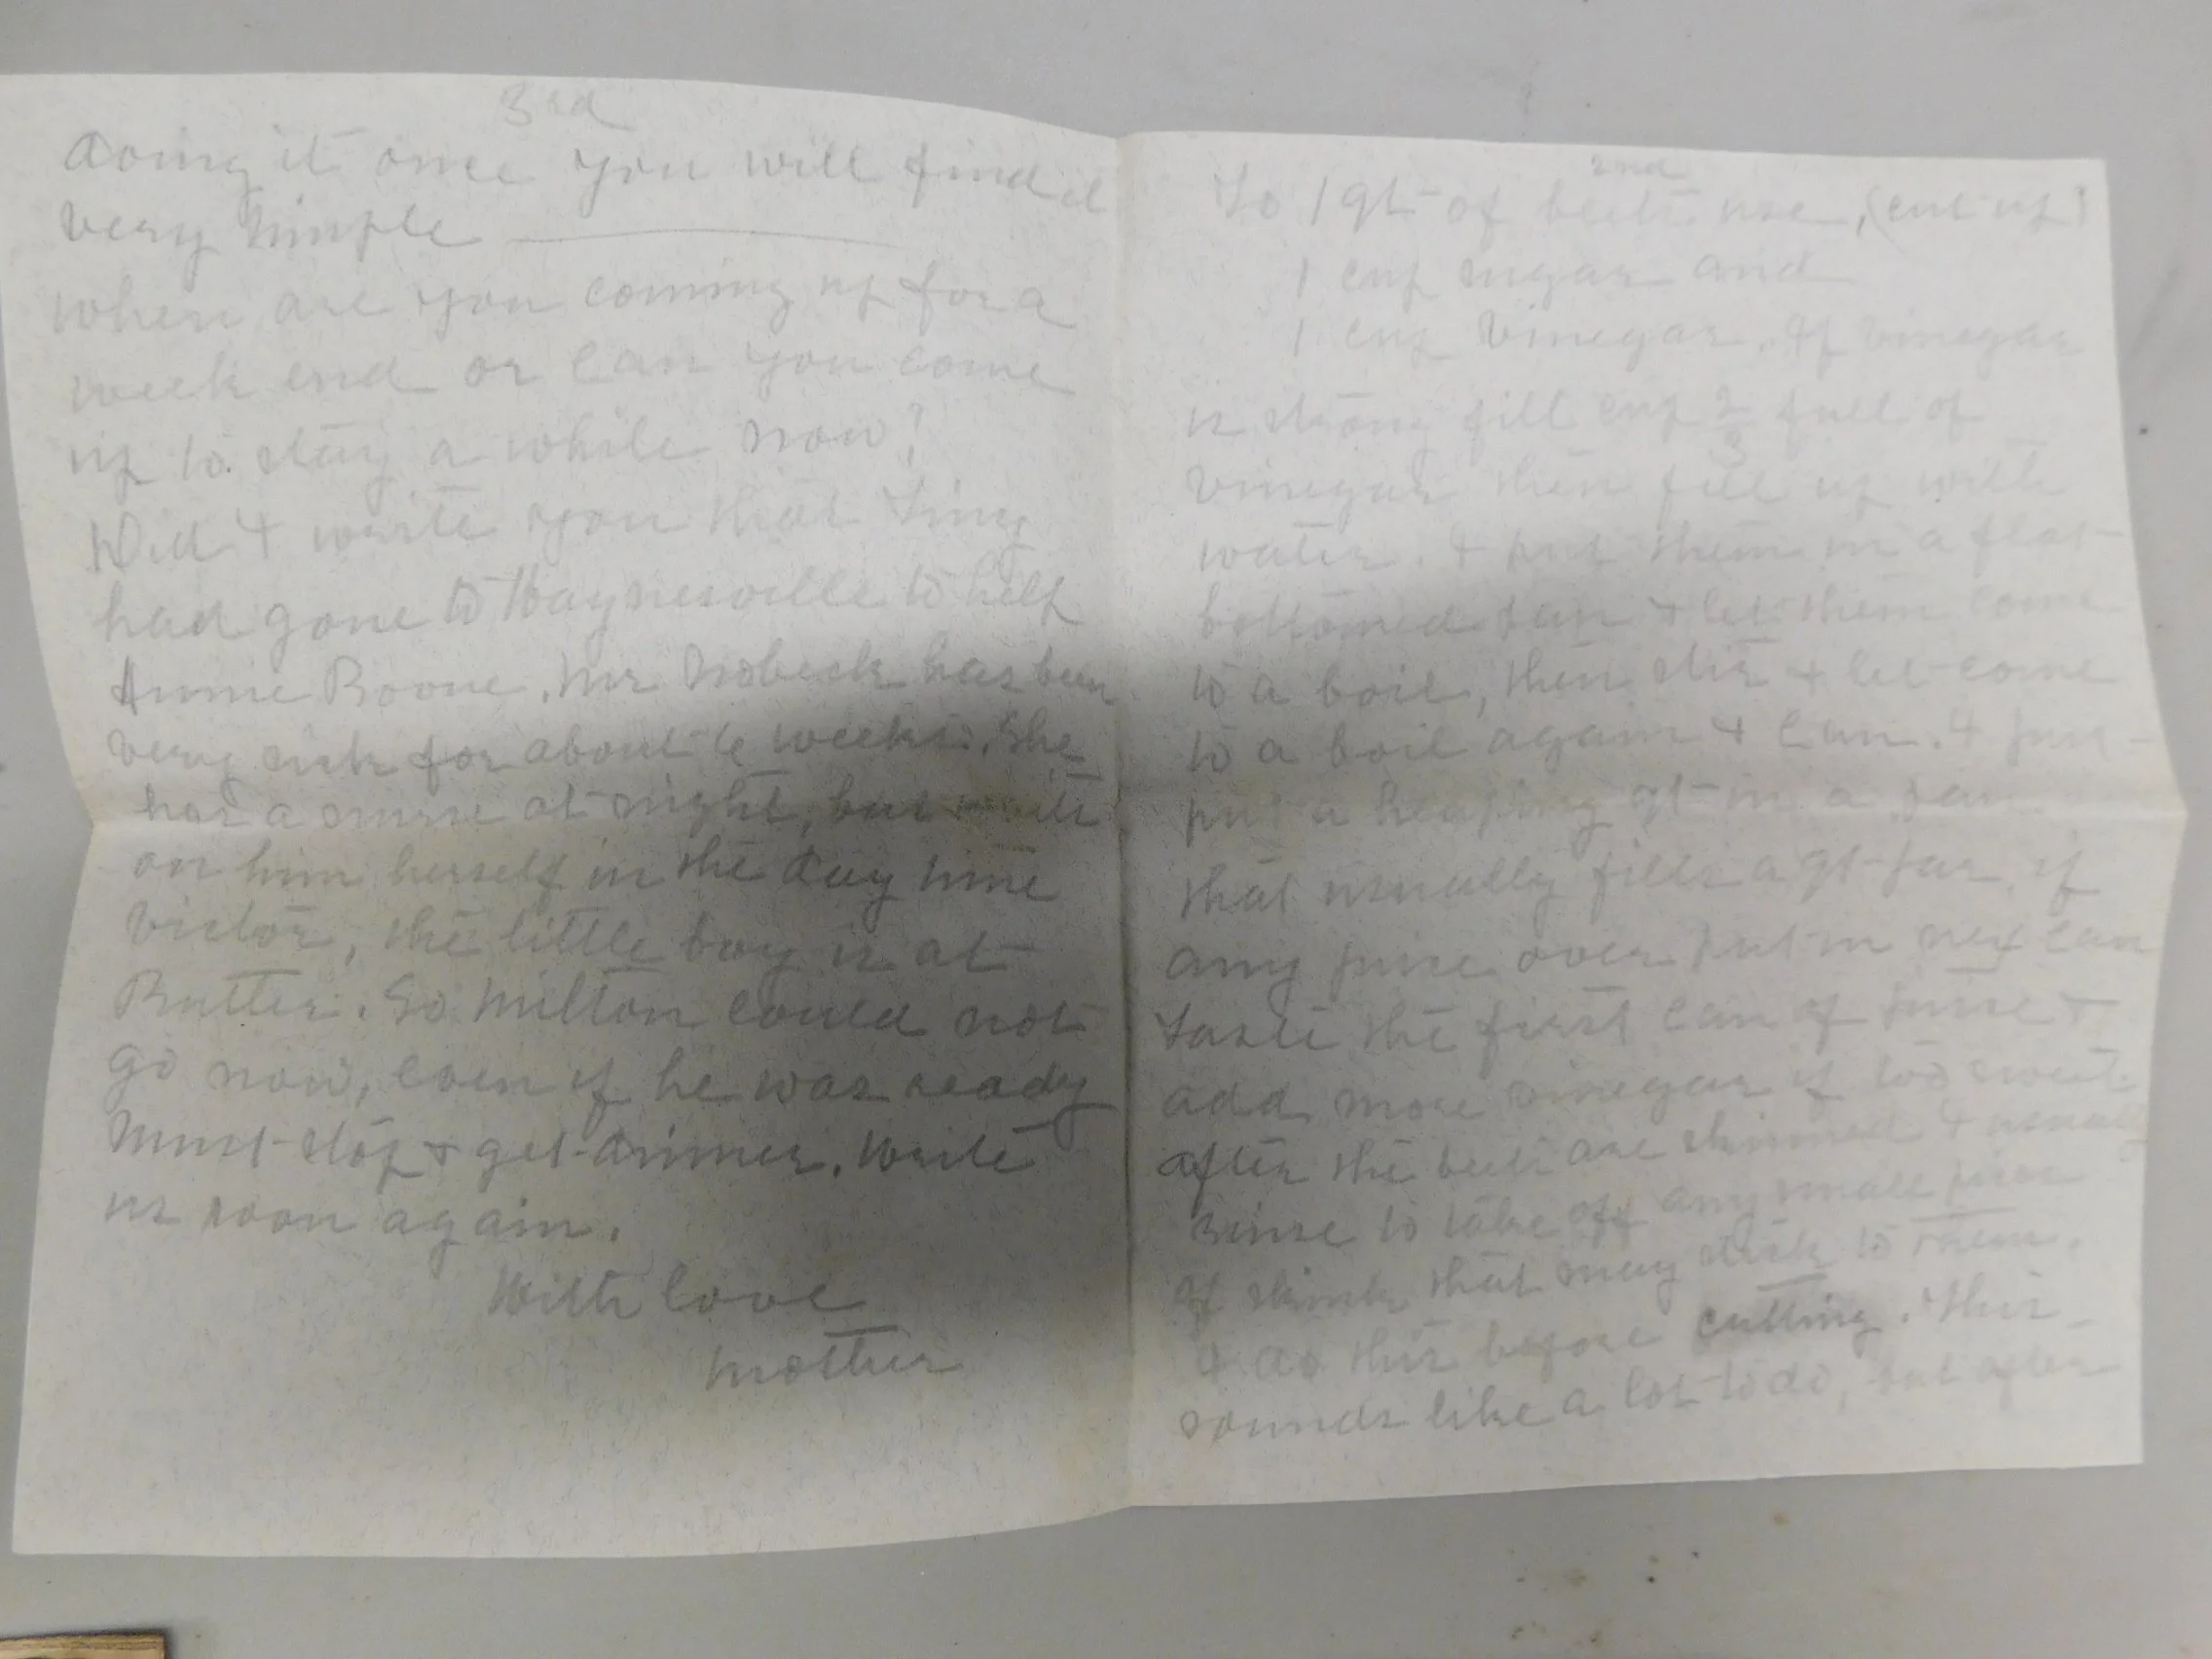 2nd
To 1 qt of beets use, (cut up)
1 cup sugar and
1 cup vinegar. If vinegar
is strong fill cup 2/3 full of
vinegar then fill up with
water. I put them in a flat
bottomed pan & let them come
to a boil, then stir & let come
to a boil again & can. I just
put a heaping qt in a pan
that usually fills a qt jar, if
any juice over put in nex can
taste the first can of juice &
add more vinegar if too sweet.
after the beets are skinned I usually
rinse to take off any small piece
of skink that may stick to them.
I do this before cutting. This
sounds like a lot to do, but after
3rd
doing it once you will find it
very simple
When are you coming up for a
week end or can you come
up to stay a while now?
Did I write you that Liny
had gone to Haynesville to help
Annie Boone. Mr has been
very sick for about 6 weeks. She
has a nurse at night, but waits
on him herself in the day time
Victor, the little boy is at
So Milton could not
go now, even if he was ready
Must stop & get dinner. Write
us soon again.
With love
Mother